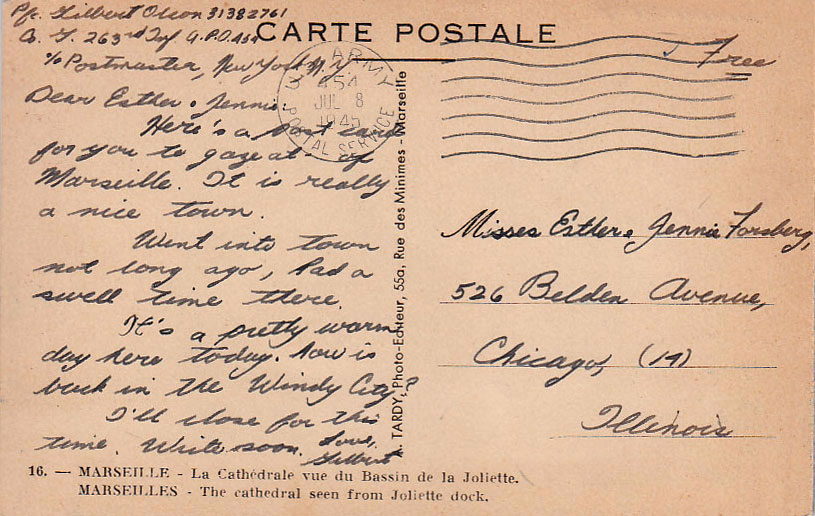 Pfc. Gilbert Olson 31382761
Co. G. 263rd Inf A.P.O. 454
% Postmaster, New York N.Y.
CARTE POSTALE
Free
U.S. ARMY
454
JUL 8
1945
POSTAL SERVICE
Dear Esther & Jennie:
Here's a post card
for you to gaze at - of
Marseille. It is really
a nice town.
Went into town
not long ago, had a
swell time there.
It's a pretty warm
day here today. How is
back in the Windy City?
I'll close for this
time. Write soon. Love,
Gilbert
A. TARDY, Photo-Editeur, 55a, Rue des Minimes - Marseille
Misses Esther & Jennie Forsberg,
526 Belden Avenue,
Chicago, (14)
Illinois
16. — MARSEILLE - La Cathédrale vue du Bassin de la Joliette.
MARSEILLES - The cathedral seen from Joliette dock.